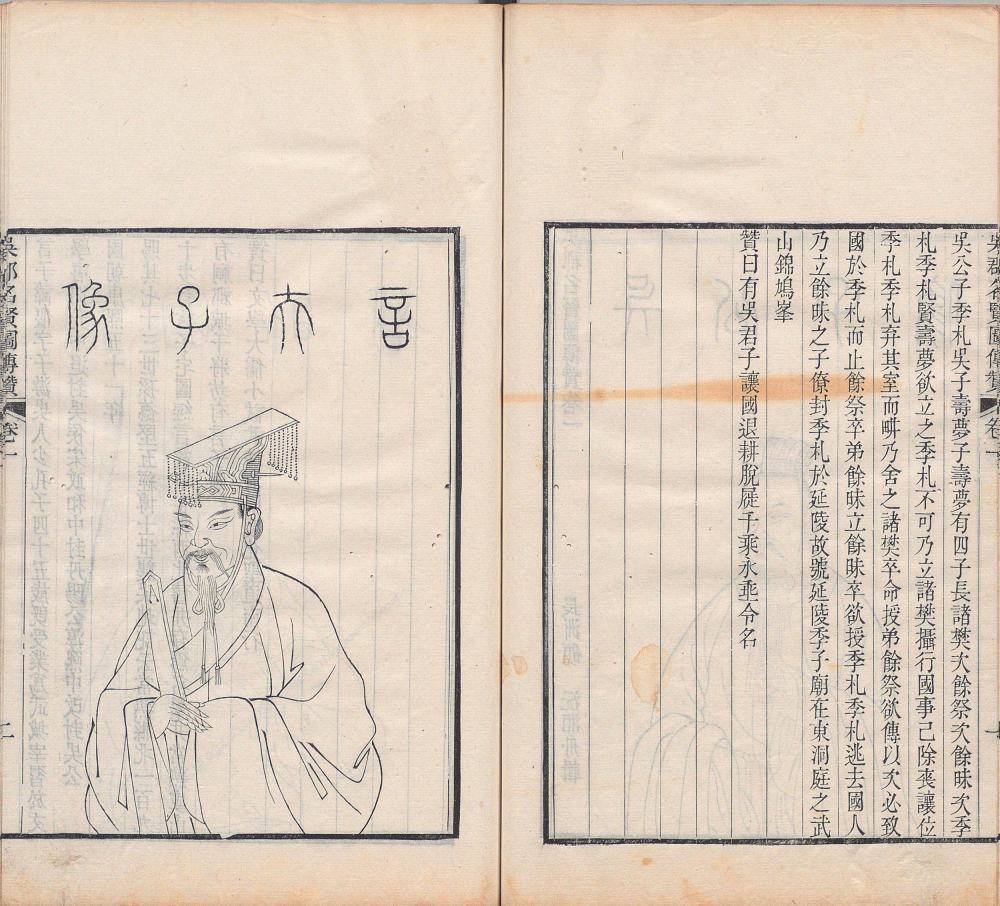 吳郡名賢圖傳贊 卷一
吳公子季札吳子壽夢子壽夢有四子長諸樊次餘祭次餘昧次季
札季札賢壽夢欲立之季札不可乃立諸樊攝行國事己除喪讓位
季札季札弃其室而畊乃舍之諸樊卒命授弟餘祭欲傳以次必致
國於季札而止餘祭卒弟餘昧立餘昧卒欲授季札季札逃去國人
乃立餘昧之子僚封季札於延陵故號延陵季子廟在東洞庭之武
山錦鳩峯
贊曰有吳君子讓國退耕脫屣千乘永垂令名
言夫子像
吳郡名賢圖傳贊 卷一 二